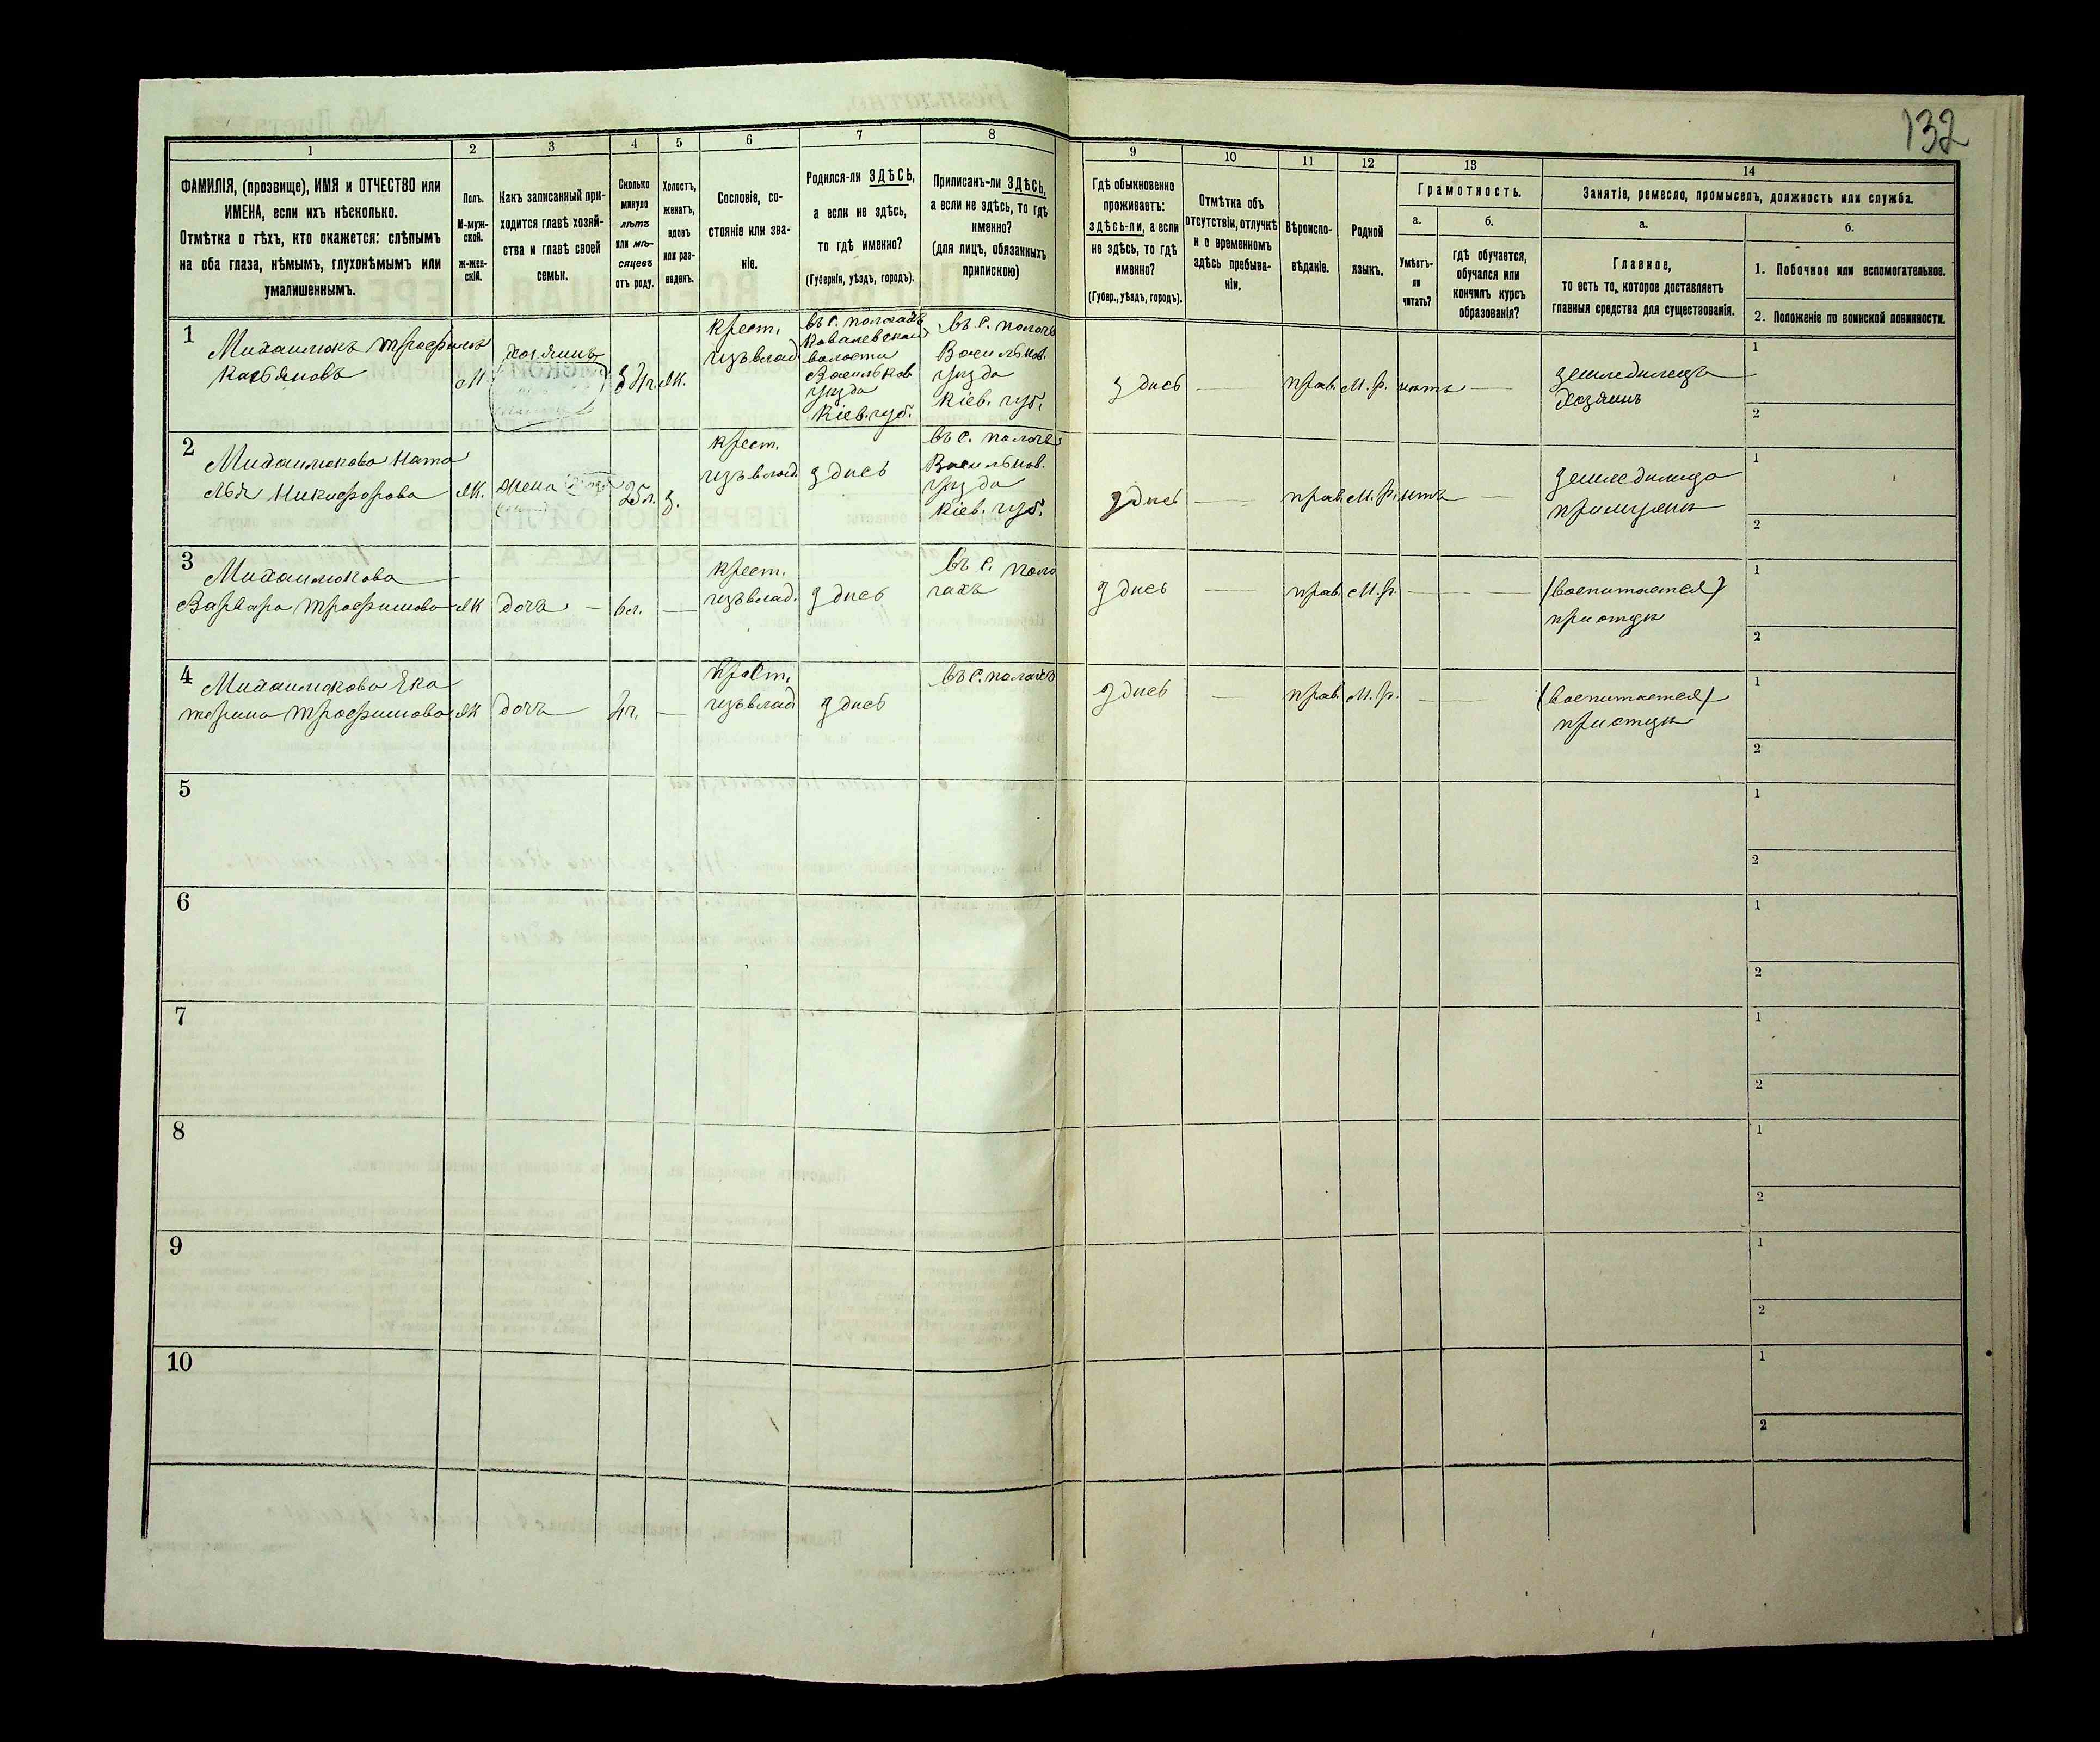 132
1
2
3
4
5
6
7
8
9
10
11
12
13
14
ФАМИЛІЯ, (прозвище), ИМЯ и ОТЧЕСТВО или
ИМЕНА, если ихъ нѣсколько.
Отмѣтка о тѣхъ, кто окажется: слѣпымъ
на оба глаза, нѣмымъ, глухонѣмымъ или
умалишеннымъ.
Полъ.
М-муж-
ской.
Ж-жен-
скій.
Какъ записанный при-
ходится главѣ хозяй-
ства и главѣ своей
семьи.
Сколько
минуло
лѣтъ
или мѣ-
сяцевъ
отъ роду.
Холостъ,
женатъ,
вдовъ
или раз-
веденъ.
Сословіе, со-
стояніе или зва-
ніе.
Родился-ли ЗДѢСЬ,
а если не здѣсь,
то гдѣ именно?
(Губернія, уѣздъ, городъ).
Приписанъ-ли ЗДѢСЬ,
а если не здѣсь, то гдѣ
именно?
(для лицъ, обязанныхъ
припискою)
Гдѣ обыкновенно
проживаетъ:
ЗДѢСЬ-ли, а если
не здѣсь, то гдѣ
именно?
(Губер., уѣздъ, городъ).
Отмѣтка объ
отсутствіи, отлучкѣ
и о временномъ
здѣсь пребыва-
ніи.
Вѣроиспо-
вѣданіе.
Родной
языкъ.
Грамотность.
а.
Умѣетъ-
ли
читать?
б.
гдѣ обучается,
обучался или
кончилъ курсъ
образованія?
Занятія, ремесло, промыселъ, должность или служба.
а.
Главное,
то есть то, которое доставляетъ
главныя средства для существованія.
б.
1. Побочное или вспомогательное.
2. Положеніе по воинской повинности.
1
Михаилюкъ Трофимъ
Касьяновъ
М
хозяинъ
Ж.
крест.
изъ влад.
въ с. Пологахъ
Ковалевской
волости
Васильков
уѣзда
Кіев. губ.
въ с. Полога
Васильков.
уѣзда
Кіев. губ.
здѣсь
прав.
М. р.
нѣтъ
земледелецъ
хозяинъ
1
2
2
Михаилюкова Ната
лья Никифорова
Ж.
жена
25 л.
З.
крест.
изъ влад.
здѣсь
въ с. Полога
Васильков.
уѣзда
Кіев. губ.
здѣсь
прав.
М. р.
нѣтъ
земледелица
при мужѣ
1
2
3
Михаилюкова
Варвара Трофимова
Ж
дочь
6 л.
крест.
изъ влад.
здѣсь
въ с. Поло
гахъ
здѣсь
прав.
М. р.
(воспитается)
при отцѣ
1
2
4
Михаилюкова Ека
терина Трофимова
Ж
дочь
крест.
изъ влад
здѣсь
въ с. Полога
здѣсь
прав.
М. р.
(воспитается)
при отцѣ
1
2
5
1
2
6
1
2
7
1
2
8
1
2
9
1
2
10
1
2